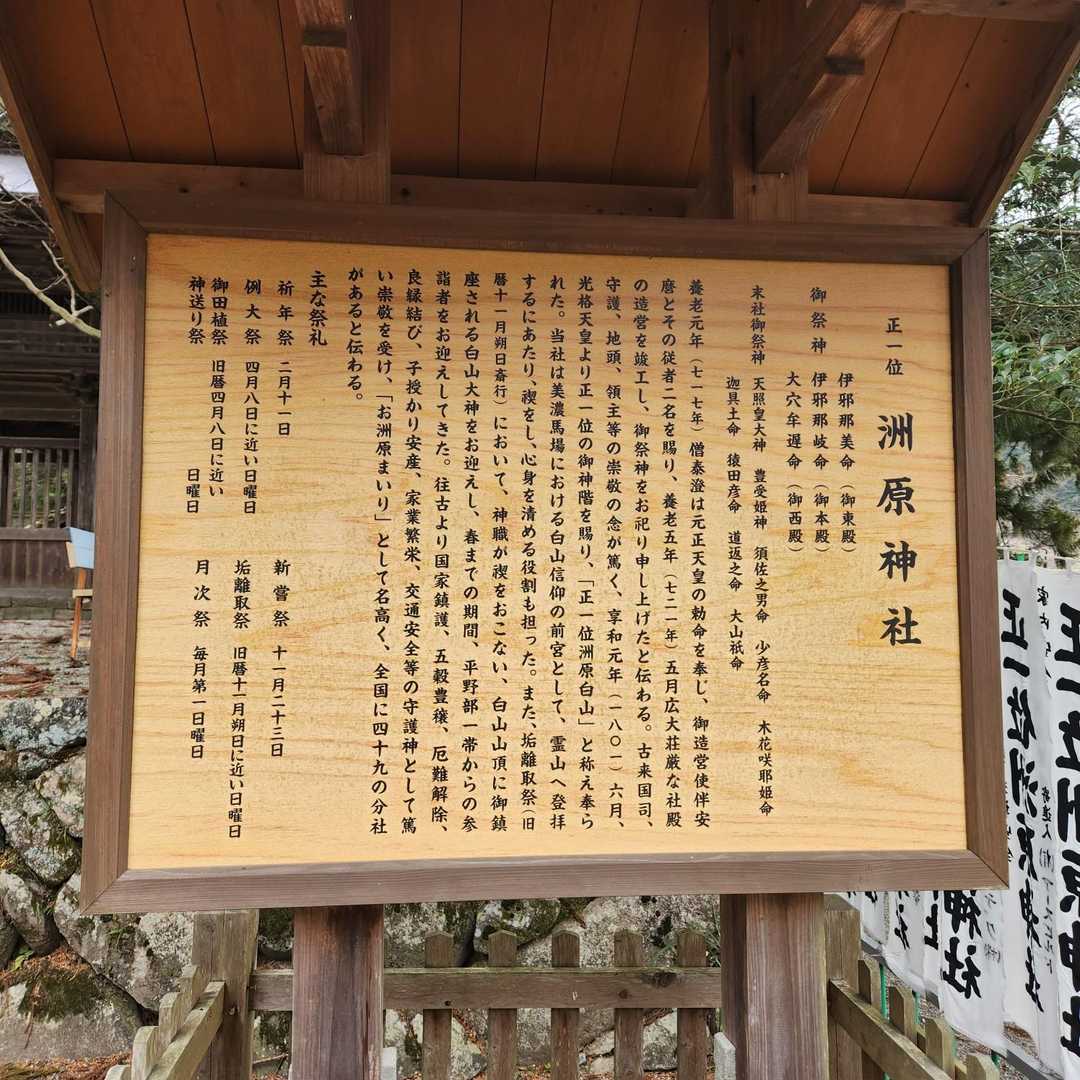 正一位 洲原神社
御祭神 伊邪那美命(御東殿)
伊邪那岐命(御本殿)
大穴牟遅命(御西殿)
末社御祭神 天照皇大神 豊受姫神 須佐之男命 少彦名命 木花咲耶姫命
迦具土命 猿田彦命 道返之命 大山祇命
養老元年(七一七年)僧泰澄は元正天皇の勅命を奉じ、御造営使伴安
麿とその従者二名を賜り、養老五年(七二一年)五月広大荘厳な社殿
の造営を竣工し、御祭神をお祀り申し上げたと伝わる。古来国司、
守護、地頭、領主等の崇敬の念が篤く、享和元年(一八〇一)六月、
光格天皇より正一位の御神階を賜り、「正一位洲原白山」と称え奉ら
れた。当社は美濃馬場における白山信仰の前宮として、霊山へ登拝
するにあたり、禊をし、心身を清める役割も担った。また、垢離取祭(旧
暦十一月朔日斎行)において、神職が禊をおこない、白山山頂に御鎮
座される白山大神をお迎えし、春までの期間、平野部一帯からの参
詣者をお迎えしてきた。往古より国家鎮護、五穀豊穣、厄難解除、
良縁結び、子授かり安産、家業繁栄、交通安全等の守護神として篤
い崇敬を受け、「お洲原まいり」として名高く、全国に四十九の分社
があると伝わる。
主な祭礼
祈年祭 二月十一日
例大祭 四月八日に近い日曜日
御田植祭 旧暦四月八日に近い
神送り祭 日曜日
新嘗祭 十一月二十三日
垢離取祭 旧暦十一月朔日に近い日曜日
月次祭 毎月第一日曜日
正一位洲原神社
正一位洲原神社
神社